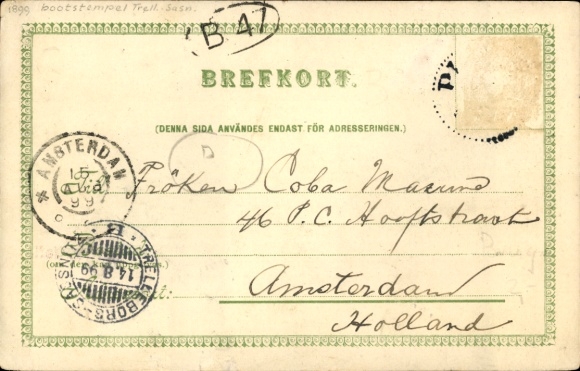 1899 bootstempel Trell.-Sasn.
B 47
BREFKORT.
(DENNA SIDA ANVÄNDES ENDAST FÖR ADRESSERINGEN.)
AMSTERDAM
15
AUG
99
Fröken Coba
46 P.C. Hooftstraat
14.8.99
Amsterdam
Holland